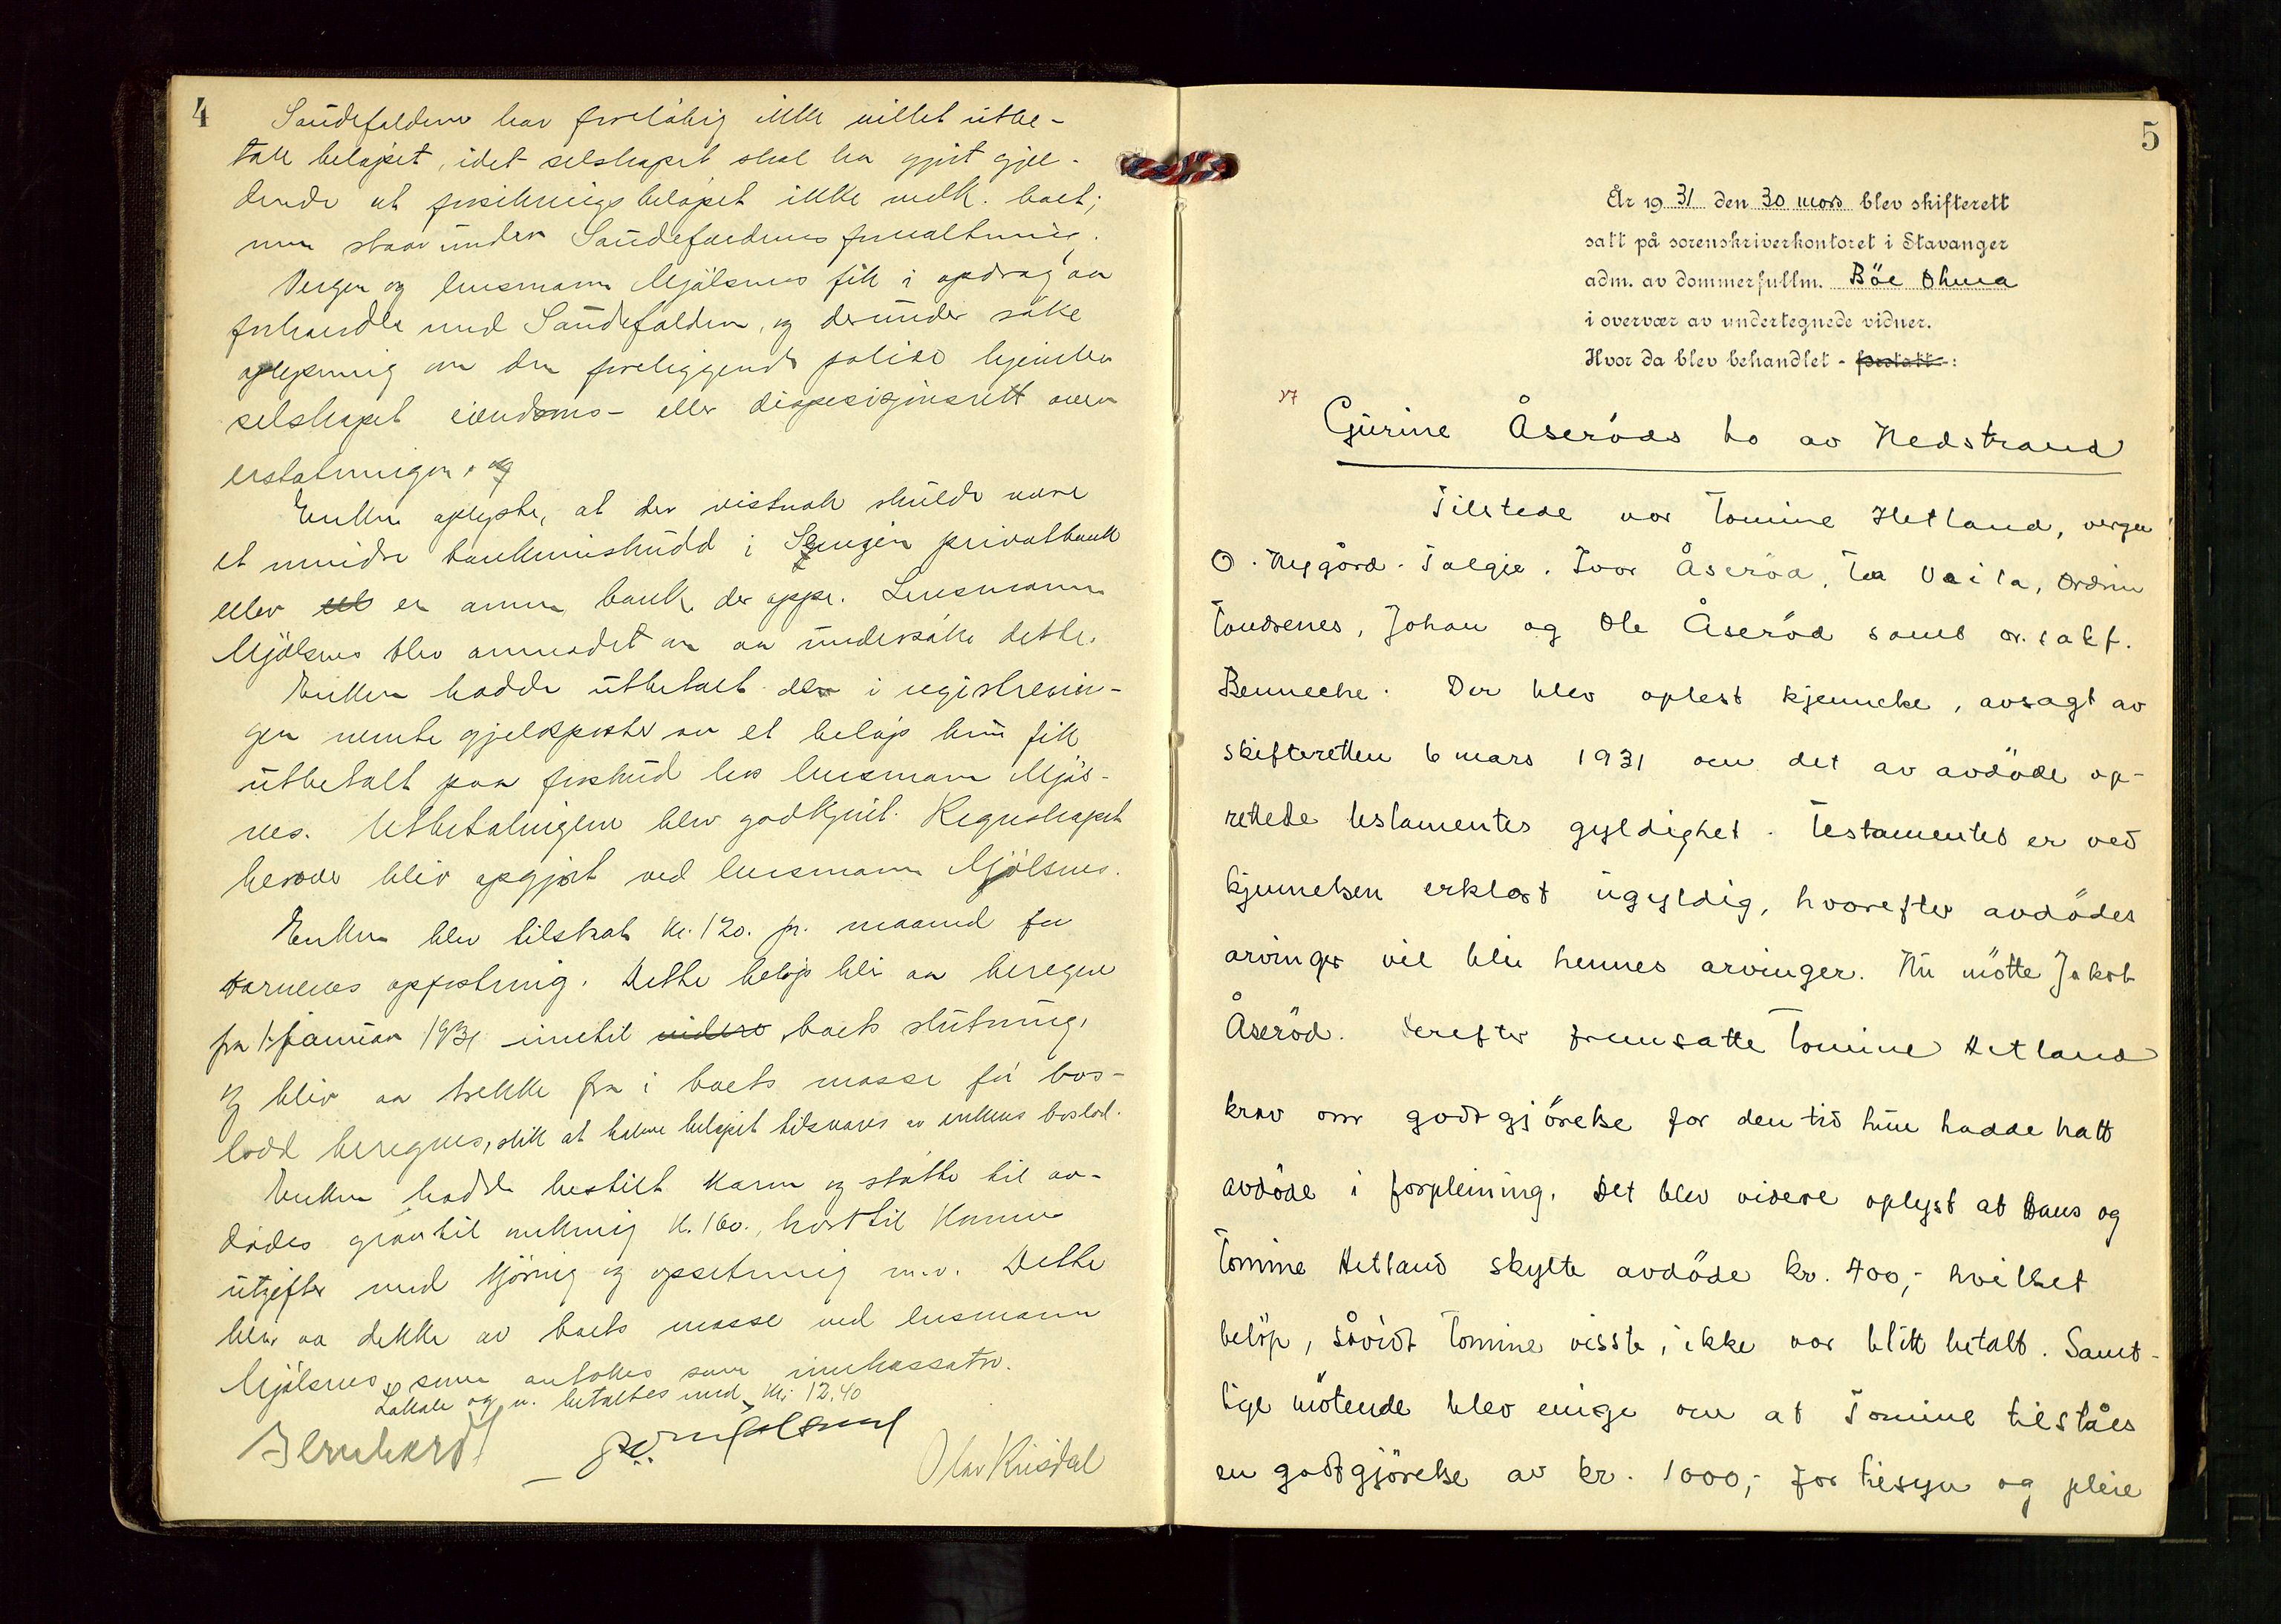 4
Saudefaldene har foreløbig ikke villet utbe-
tale beløpet, idet selskapet skal ha gjort gjel-
dende at forsikringsbeløpet ikke vedk. boet;
men staar under Saudefaldenes forvaltning.
Vergen og lensmann Mjølsnes fik i opdrag aa
forhandle med Saudefaldene, og derunder søke
oplysning om den foreliggende polise hjemler
selskapet eiendoms- eller disposisjonsrett over
erstatningen. og
Enken oplyste, at der vistnok skulde være
et mindre bankinnskudd i privatbank
eller en annen bank der oppe. Lensmann
Mjølsnes blev anmodet om aa undersøke dette.
Enken hadde utbetalt de i registrerin-
gen nevnte gjeldsposter av et beløp hun fikk
utbetalt paa forskud hos lensmann Mjøls-
nes. Utbetalingene blev godkjent. Regnskapet
herover blir opgjort ved lensmann Mjølsnes.
Enken blev tilstaat kr. 120. pr. maaned for
barnenes opfostring. Dette beløp blir aa beregne
fra 1. januar 1931 inntil videre boets slutning,
og blir aa trekke fra i boets masse før bos-
lodd beregnes, slik at halve beløpet tilsvares av enkens boslod.
Enken hadde bestilt karm og støtte til av-
dødes grav til omkring kr. 160., hvortil kommer
utgifter med kjøring og opsetning m.v. Dette
blir aa dekke av boets masse ved lensmann
Mjølsnes, som antokes som inkassator.
Lokale og v. betaltes med kr. 12.40
Olav Riisdal
5
År 1931 den 30 mars blev skifterett
satt på sorenskriverkontoret i Stavanger
adm. av dommerfullm. Böe Ohma
i overvær av undertegnede vidner.
Hvor da blev behandlet - forsatt -:
Gjurine Åseröds bo av Nedstrand
Tilstede var Tomine Hetland, verge
O. Nygård. Talgje. Ivar Åseröd, Tea Vaila, Ordin
Tondsenes, Johan og Ole Åseröd samt or. sakf.
Bennecke. Der blev oplest kjennelse, avsagt av
skifteretten 6 mars 1931 om det av avdöde op-
rettede testamentes gyldighet. Testamentet er ved
kjennelsen erklært ugyldig, hvorefter avdödes
arvinger vil bli hennes arvinger. Nu mötte Jakob
Åseröd. Derefter fremsatte Tomine Hetland
krav om godtgjörelse for den tid hun hadde hatt
avdöde i forpleining. Det blev videre oplyst at Hans og
Tomine Hetland skylte avdöde kr. 400,- hvilket
belöp, såvidt Tomine visste, ikke var blitt betalt. Samt-
lige mötende blev enige om at Tomine tilståes
en godtgjörelse av kr. 1000,- for tilsyn og pleie